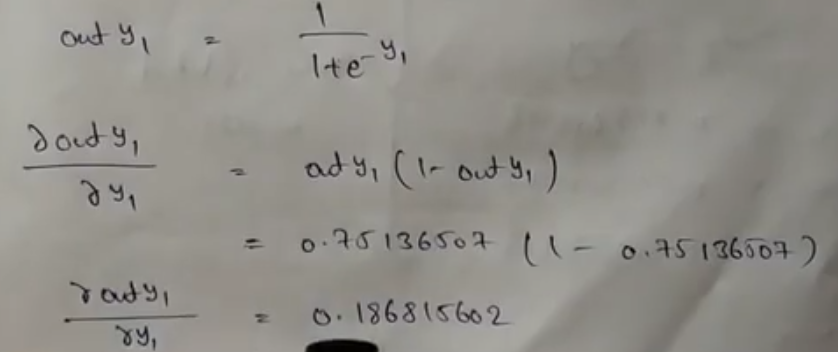 out y₁ = 1/(1+e^-y₁)
∂out y₁/∂y₁ = out y₁ (1- out y₁)
= 0.75136507 (1- 0.75136507)
∂out y₁/∂y₁ = 0.186815602